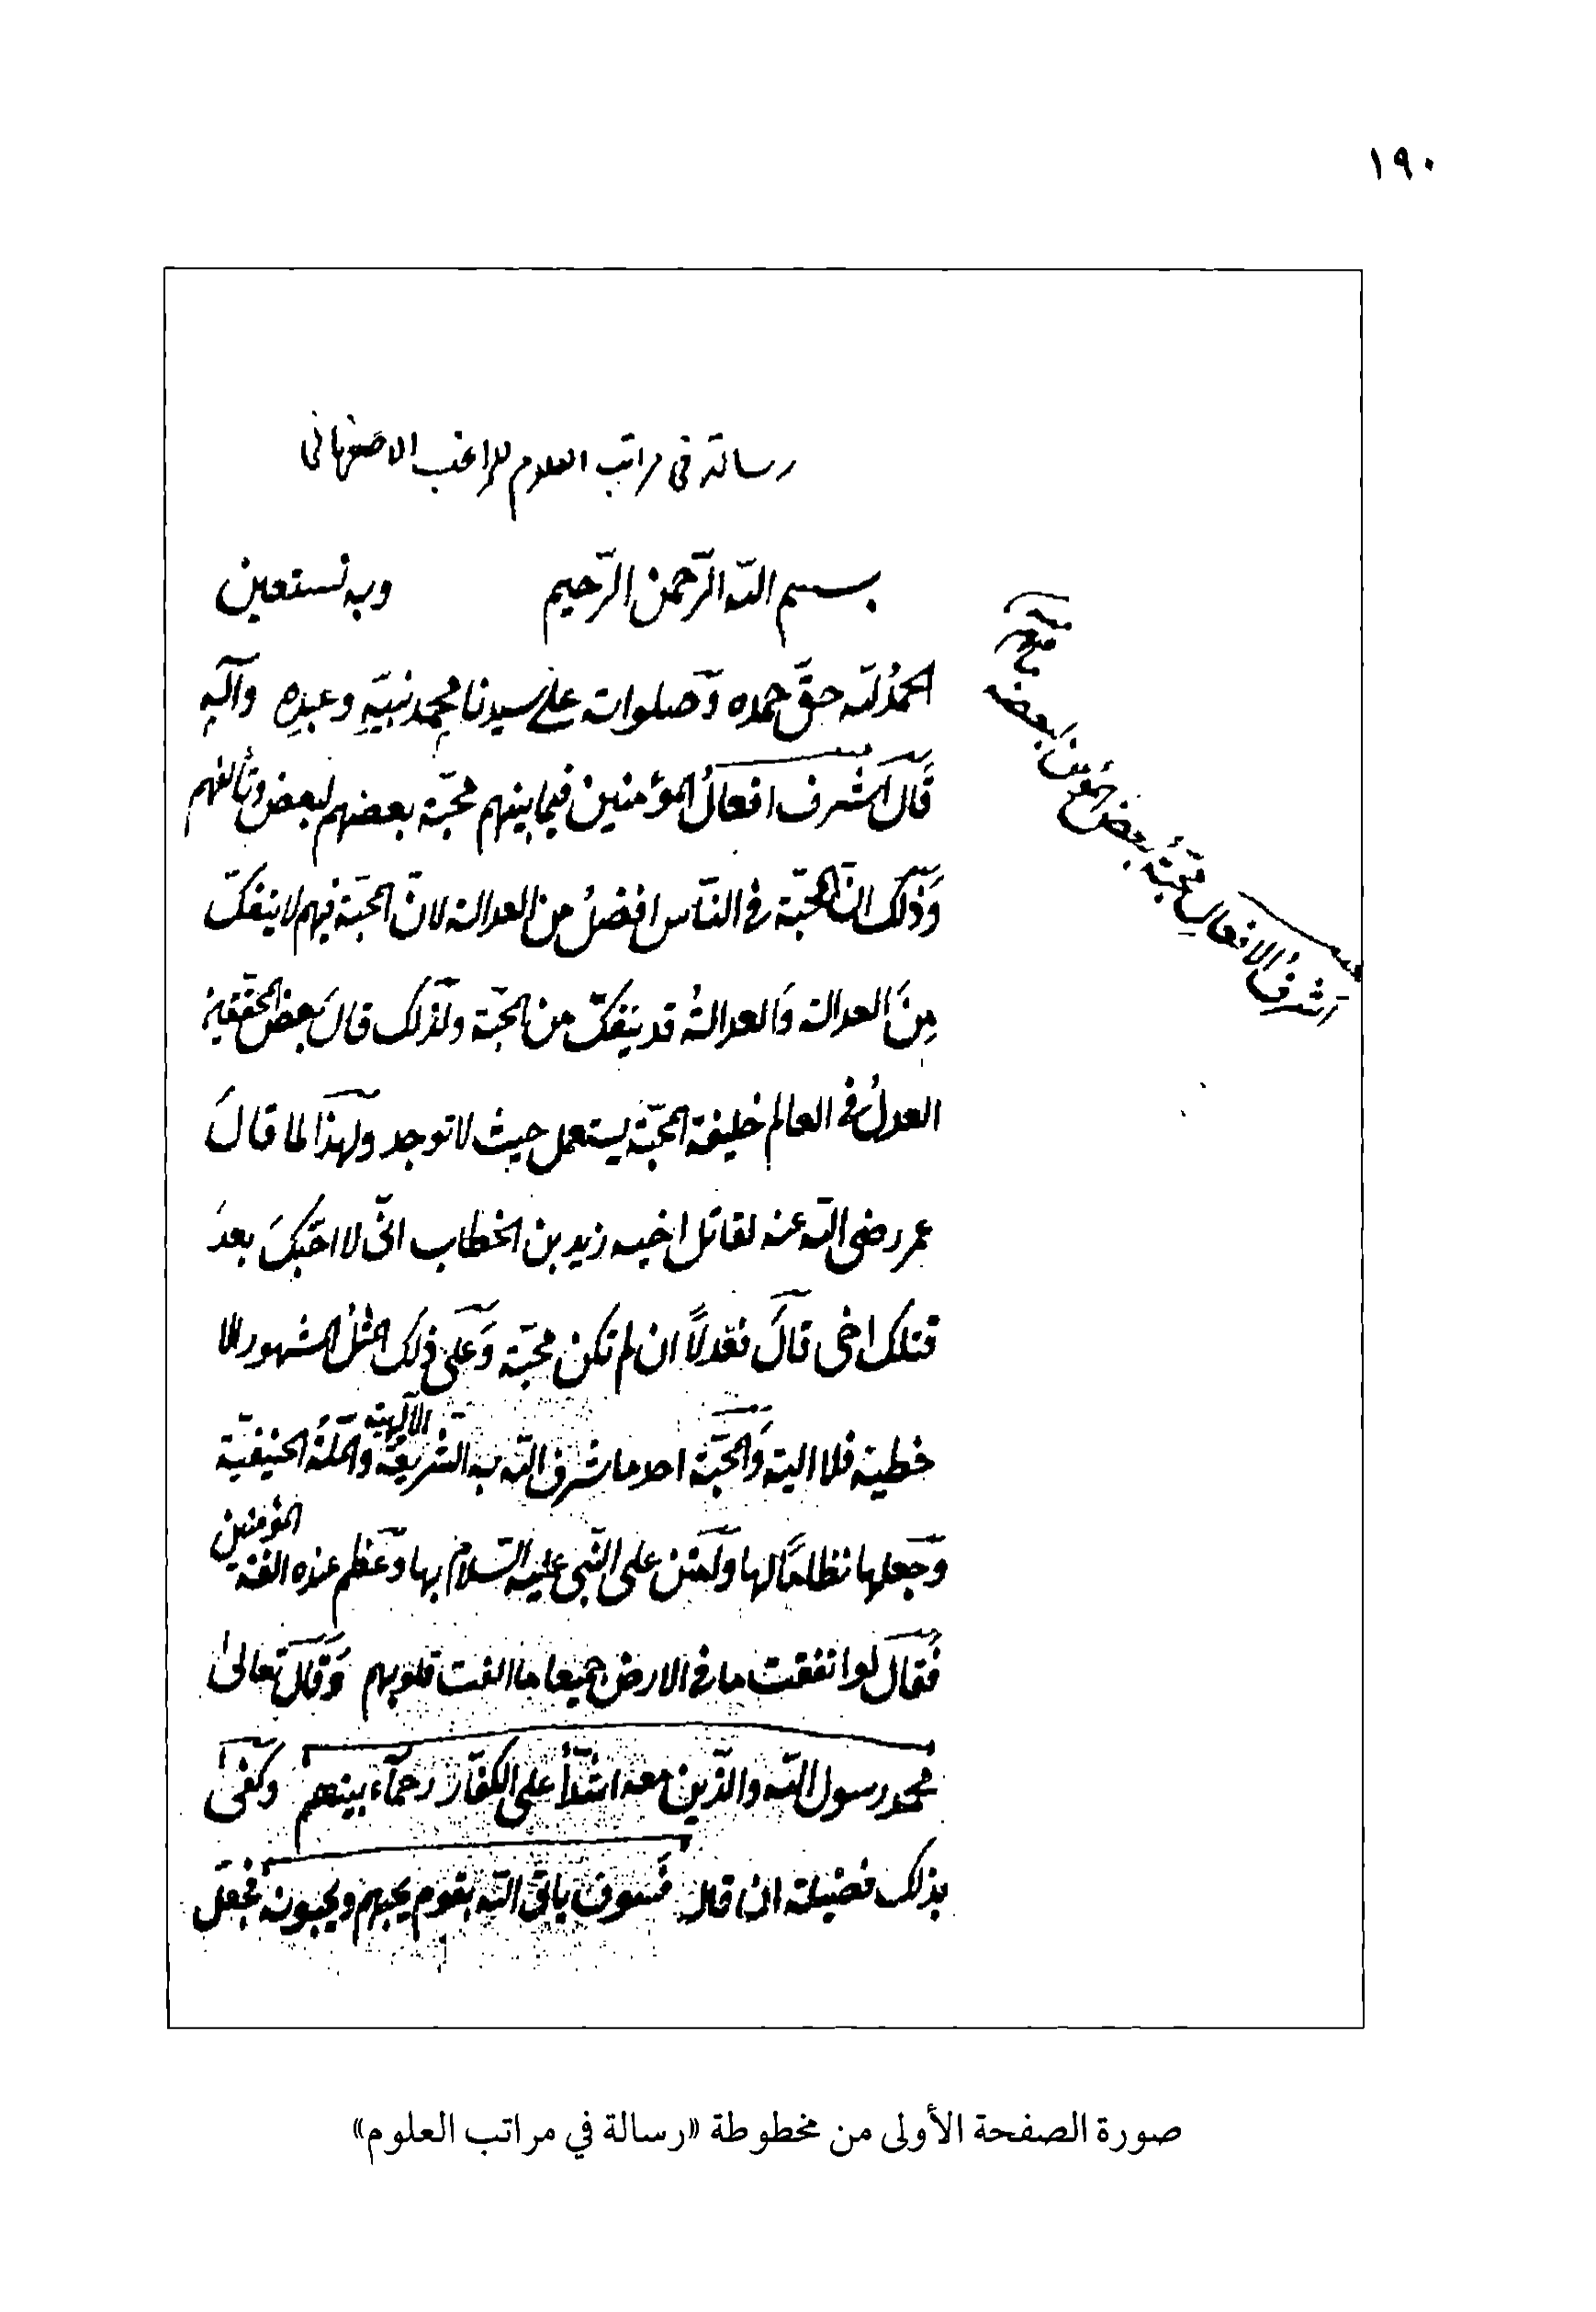 ١٩٠
رسالة فى مراتب العلوم للراغب الاصفهانى
بسم الله الرّحمن الرّحيم وبه نستعين
الحمدُ لله حقّ حمده وصلوات على سيدنا محمد نبيّه وعبده وآله
قال اشرف افعال المؤمنين فيما بينهم محبّة بعضهم لبعض وتآلفهم
وذلك انّ المحبّة فى النّاس افضلُ من العدالة لانّ المحبّة فيهم لا ينفكّ
مِنَ العدالة وَالعدالةُ قد ينفكّ من المحبّة ولذلك قالَ بعض المحقّقين
العدلُ فى العالم خليفة المحبّة يستعمل حيث لا توجد ولهذا لما قالَ
عمر رضى الله عنه لقاتل اخيه زيد بن الخطاب انّى لا احبّكَ بعدَ
قتلك اخى قالَ فعدلاً ان لم تكن محبّة وَعلى ذلك المثلُ المشهور الا
خطية فلا الية وَالمحبّة احد ما شرف الله به الشريعةَ الالٓهية والملّةَ الحنيفيّة
وجعلها نظامًا لها ولمتن على النّبى عليه السّلام بها وعَظم عنده الفة المؤمنين
فقالَ لو انفقت ما فى الارض جميعا ما الفت قلوبهم وَقالَ تعالىٰ
محمد رسول الله والّذين معه اشدّاُ على الكفّار رحمآء بينهم وكفىٰ
بذلك فضيلة ان قال فسوف ياتى الله بقوم يحبهم ويحبونه فجعل
اشرفُ الافعالِ محبّةُ بعض المؤمنينَ بعضه
صورة الصفحة الأولى من مخطوطة «رسالة في مراتب العلوم»